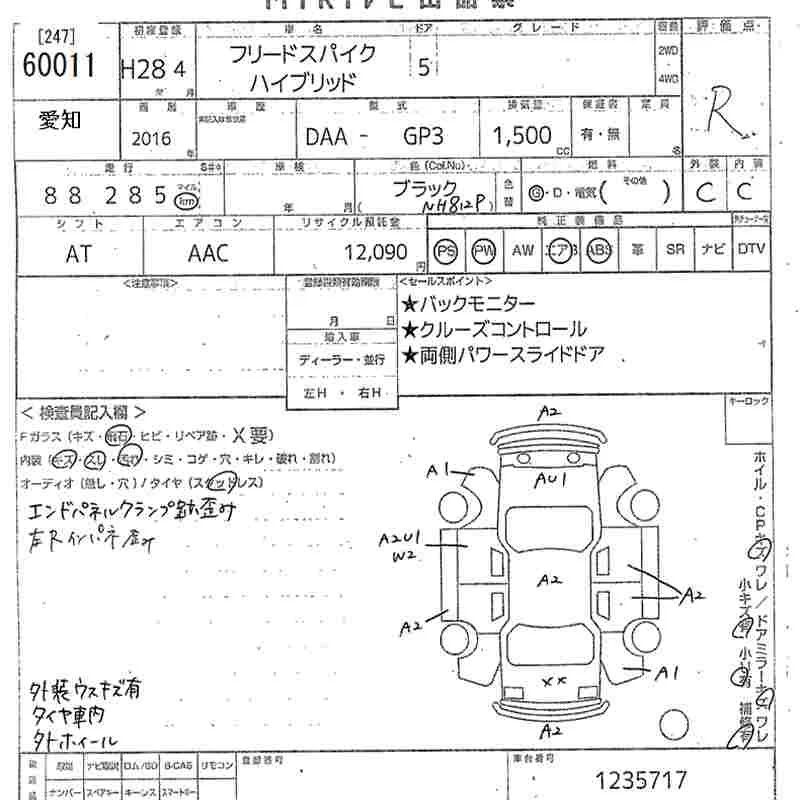 [247]
60011
初度登録
H28 4
年 月
車名
フリードスパイク
ハイブリッド
ドア
5
グレード
2WD
4WD
評価点
R
愛知
2016
年
車歴
型式
DAA - GP3
排気量
1,500
CC
保証書
有・無
定員
名
走行
88 285
マイル
km
車検
年 月
色 (Col.No)
ブラック
NH812P
色替
燃料
G・D・電気( その他 )
外装
C
内装
C
シフト
AT
エアコン
AAC
リサイクル預託金
12,090
円
純正装備品
PS PW AW エアB ABS 革 SR ナビ DTV
<注意事項>
月 日
輸入車
ディーラー・並行
左H ・ 右H
<セールスポイント>
★バックモニター
★クルーズコントロール
★両側パワースライドドア
キーロック
<検査員記入欄>
Fガラス(キズ・飛石・ヒビ・リペア跡・X要)
内装(キズ・スレ・汚れ・シミ・コゲ・穴・キレ・破れ・割れ)
オーディオ(無し・穴)/タイヤ(スタッドレス)
エンドパネルクランプ跡歪み
左Rインパネ歪み
外装ウスキズ有
タイヤ車内
外トホイール
A2
A1
AU1
A2U1
W2
A2
A2
A2
A1
XX
A2
ホイル・CPキズワレ/ドアミラーキズワレ
小キズ有 小凹有 補修有
取説
ナビ取説
ロム/SD
B-CAS
リモコン
ナンバー
スペアキー
キーレス
スマートキー
登録番号
車台番号
1235717